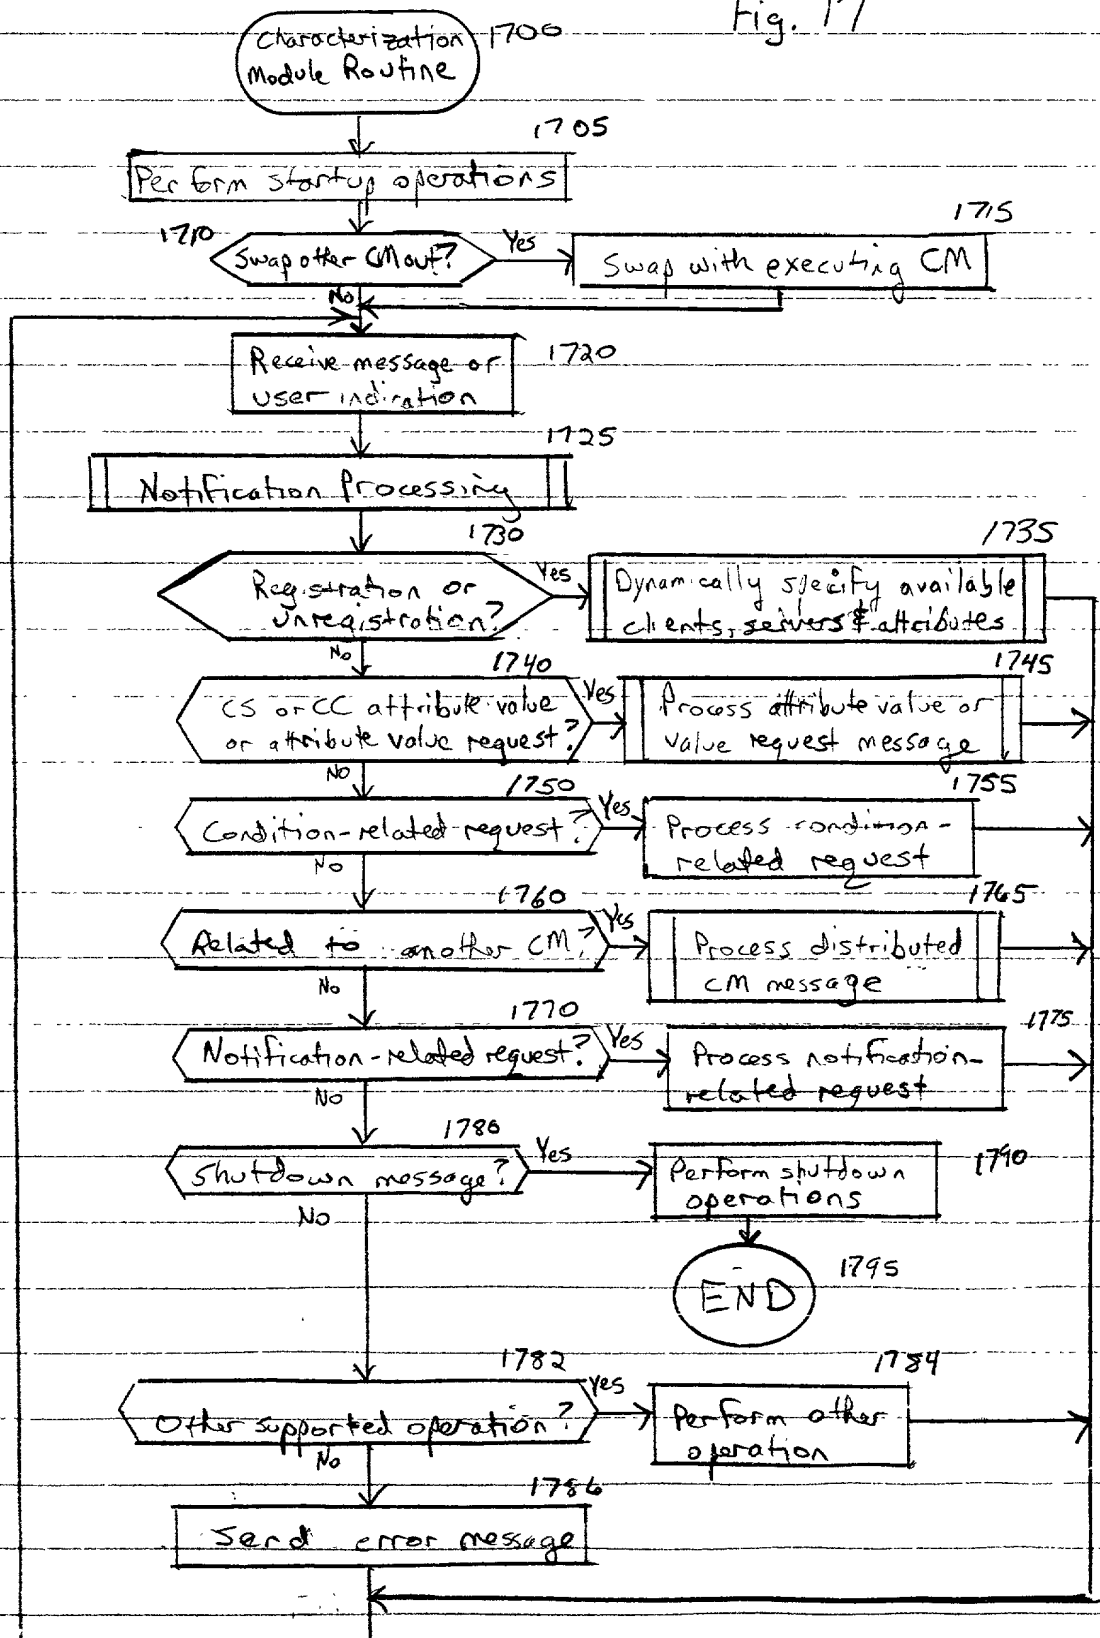 Fig. 17
Characterization
Module Routine
1700
1705
Perform startup operations
1710
Swap other CM out?
Yes
1715
Swap with executing CM
No
Receive message or
user indication
1720
1725
Notification Processing
1730
Registration or
unregistration?
Yes
1735
Dynamically specify available
clients, servers & attributes
No
1740
CS or CC attribute value
or attribute value request?
Yes
1745
Process attribute value or
value request message
No
1750
Condition-related request?
Yes
1755
Process condition-
related request
No
1760
Related to another CM?
Yes
1765
Process distributed
CM message
No
1770
Notification-related request?
Yes
1775
Process notification-
related request
No
1780
Shutdown message?
Yes
1790
Perform shutdown
operations
No
END
1795
1782
Other supported operation?
Yes
1784
Perform other
operation
No
1786
Send error message